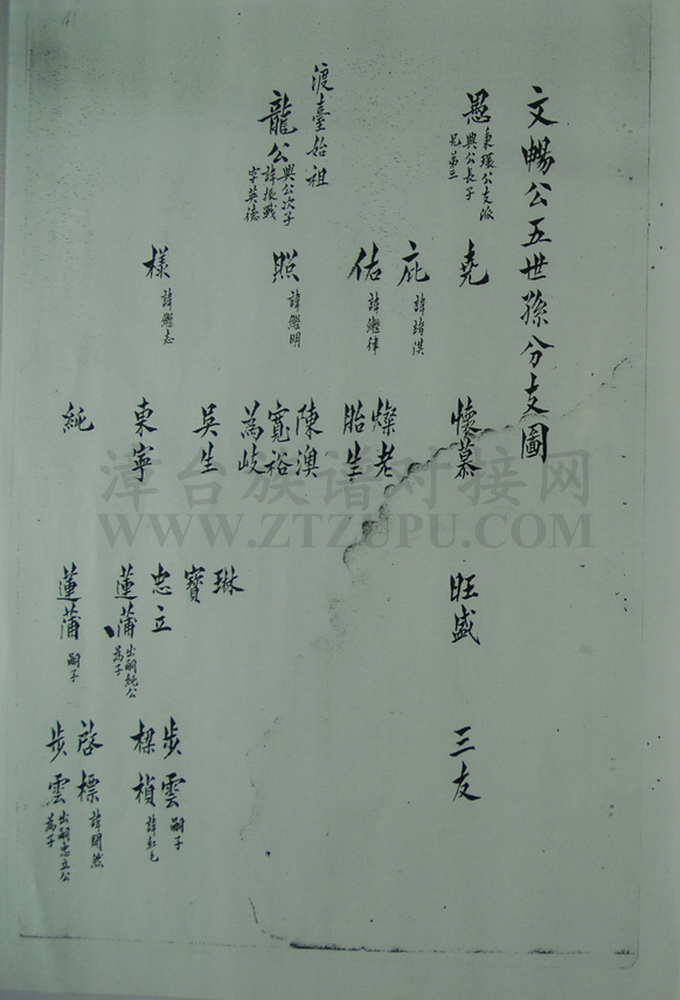 文暢公五世孫分支圖
愚
東環公支派
興公長子
兄弟三
渡臺始祖
龍公
興公次子
諱振戰
字英德
堯
庇
諱諱漠
佑
諱繼律
照
諱繼明
樣
諱繼志
懷慕
燦老
胎生
陳澳
寬裕
為岐
吳生
東寧
純
旺盛
琳
寶
忠立
蓮蒲
出嗣純公
為子
蓮蒲
嗣子
三友
步雲
嗣子
樑楨
諱紅毛
啓標
諱開然
步雲
出嗣忠立公
為子
漳台族谱对接网
WWW.ZTZUPU.COM